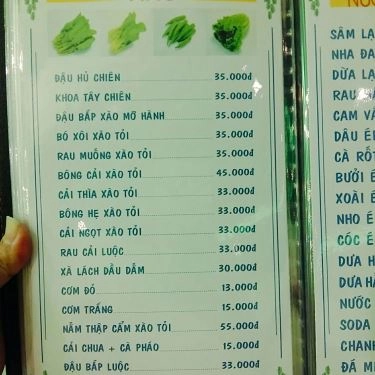 ĐẬU HỦ CHIÊN 35.000đ
KHOA TÂY CHIÊN 35.000đ
ĐẬU BẮP XÀO MỠ HÀNH 35.000đ
BÓ XÔI XÀO TỎI 35.000đ
RAU MUỐNG XÀO TỎI 35.000đ
BÔNG CẢI XÀO TỎI 45.000đ
CẢI THÌA XÀO TỎI 33.000đ
BÔNG HẸ XÀO TỎI 33.000đ
CẢI NGỌT XÀO TỎI 33.000đ
RAU CẢI LUỘC 33.000đ
XÀ LÁCH DẦU DẤM 30.000đ
CƠM ĐỎ 13.000đ
CƠM TRẮNG 15.000đ
NẤM THẬP CẨM XÀO TỎI 55.000đ
CẢI CHUA + CÀ PHÁO 15.000đ
ĐẬU BẮP LUỘC 33.000đ
SÂM LẠ
NHA ĐA
DỪA LẠ
RAU
CAM VẮ
DÂU É
CÀ RỐT
BƯỞI É
XOÀI É
NHO É
CÓC É
DƯA H
DƯA H
NƯỚC
SODA
CHANH
ĐÁ M